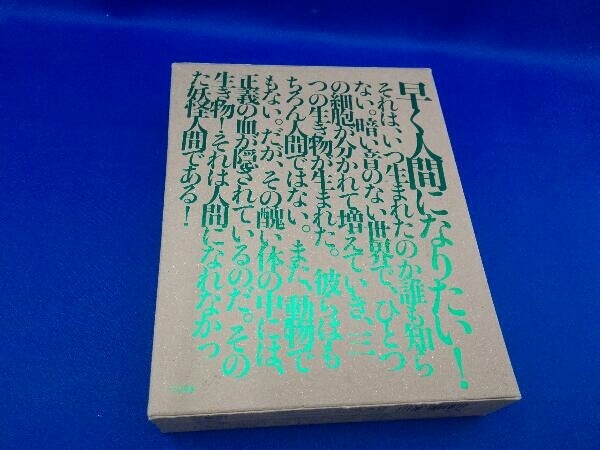 早く人間になりたい！
それは、いつ生まれたのか誰も知ら
ない。暗い音のない世界で、ひとつ
の細胞が分かれて増えていき、三
つの生き物が生まれた。彼らはも
ちろん人間ではない。また、動物で
もない。だが、その醜い体の中には、
正義の血が隠されているのだ。その
生き物！それは人間になれなかっ
た妖怪人間である！